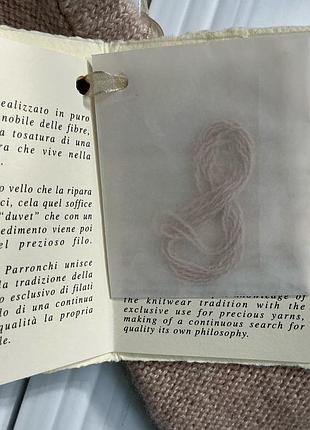 ealizzato in puro
nobile delle fibre,
a tosatura di una
ra che vive nella
.
o vello che la ripara
ci, cela quel soffice
"duvet" che con un
edimento viene poi
el prezioso filo.
Parronchi unisce
la tradizione della
o esclusivo di filati
lo di una continua
qualità la propria
le.
knowledge of
the knitwear tradition with the
exclusive use for precious yarns,
making of a continuous search for
quality its own philosophy.